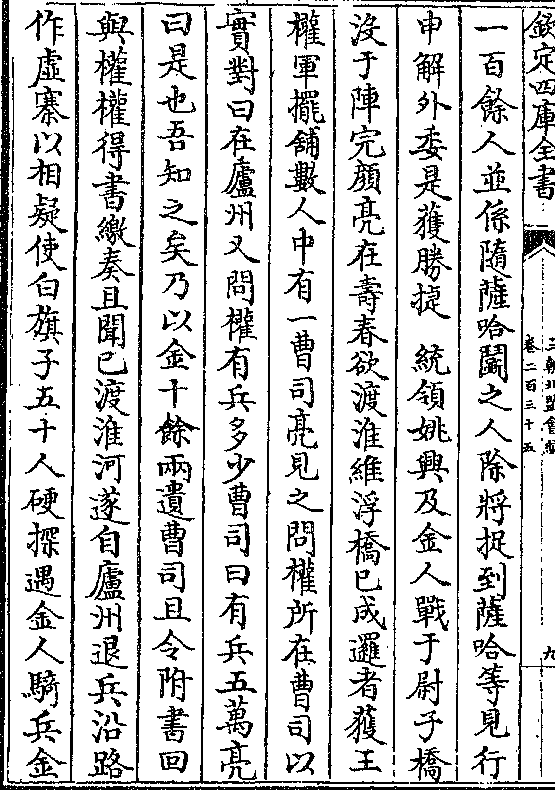 欽定四庫全書
三朝北盟會編
卷二百三十五
九
一百餘人並係隨薩哈鬭之人除將捉到薩哈等見行
申解外委是獲勝捷　統領姚興及金人戰于尉子橋
沒于陣完顔亮在壽春欲渡淮維浮橋已成邏者獲王
權軍擺鋪數人中有一曹司亮見之問權所在曹司以
實對曰在廬州又問權有兵多少曹司曰有兵五萬亮
曰是也吾知之矣乃以金十餘兩遺曹司且令附書回
與權權得書繳奏且聞已渡淮河遂自廬州退兵沿路
作虛寨以相疑使白旗子五十人硬探遇金人騎兵金